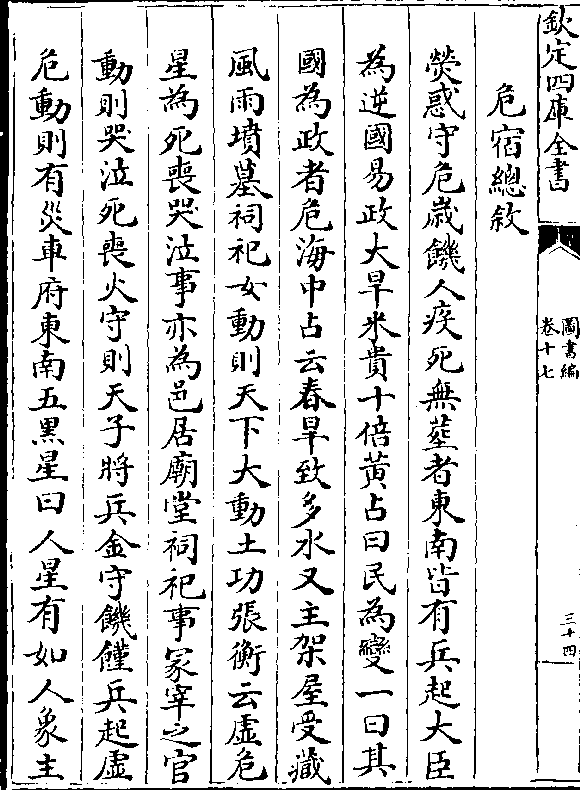 欽定四庫全書
圖書編
卷十七
三十四
危宿總敘
熒惑守危歲饑人疾死無葬者東南皆有兵起大臣
為逆國易政大旱米貴十倍黃占曰民為變一曰其
國為政者危海中占云春旱致多水又主架屋受藏
風雨墳墓祠祀女動則天下大動土功張衡云虛危
星為死喪哭泣事亦為邑居廟堂祠祀事冡宰之官
動則哭泣死喪火守則天子將兵金守饑饉兵起虛
危動則有災車府東南五黑星曰人星有如人象主